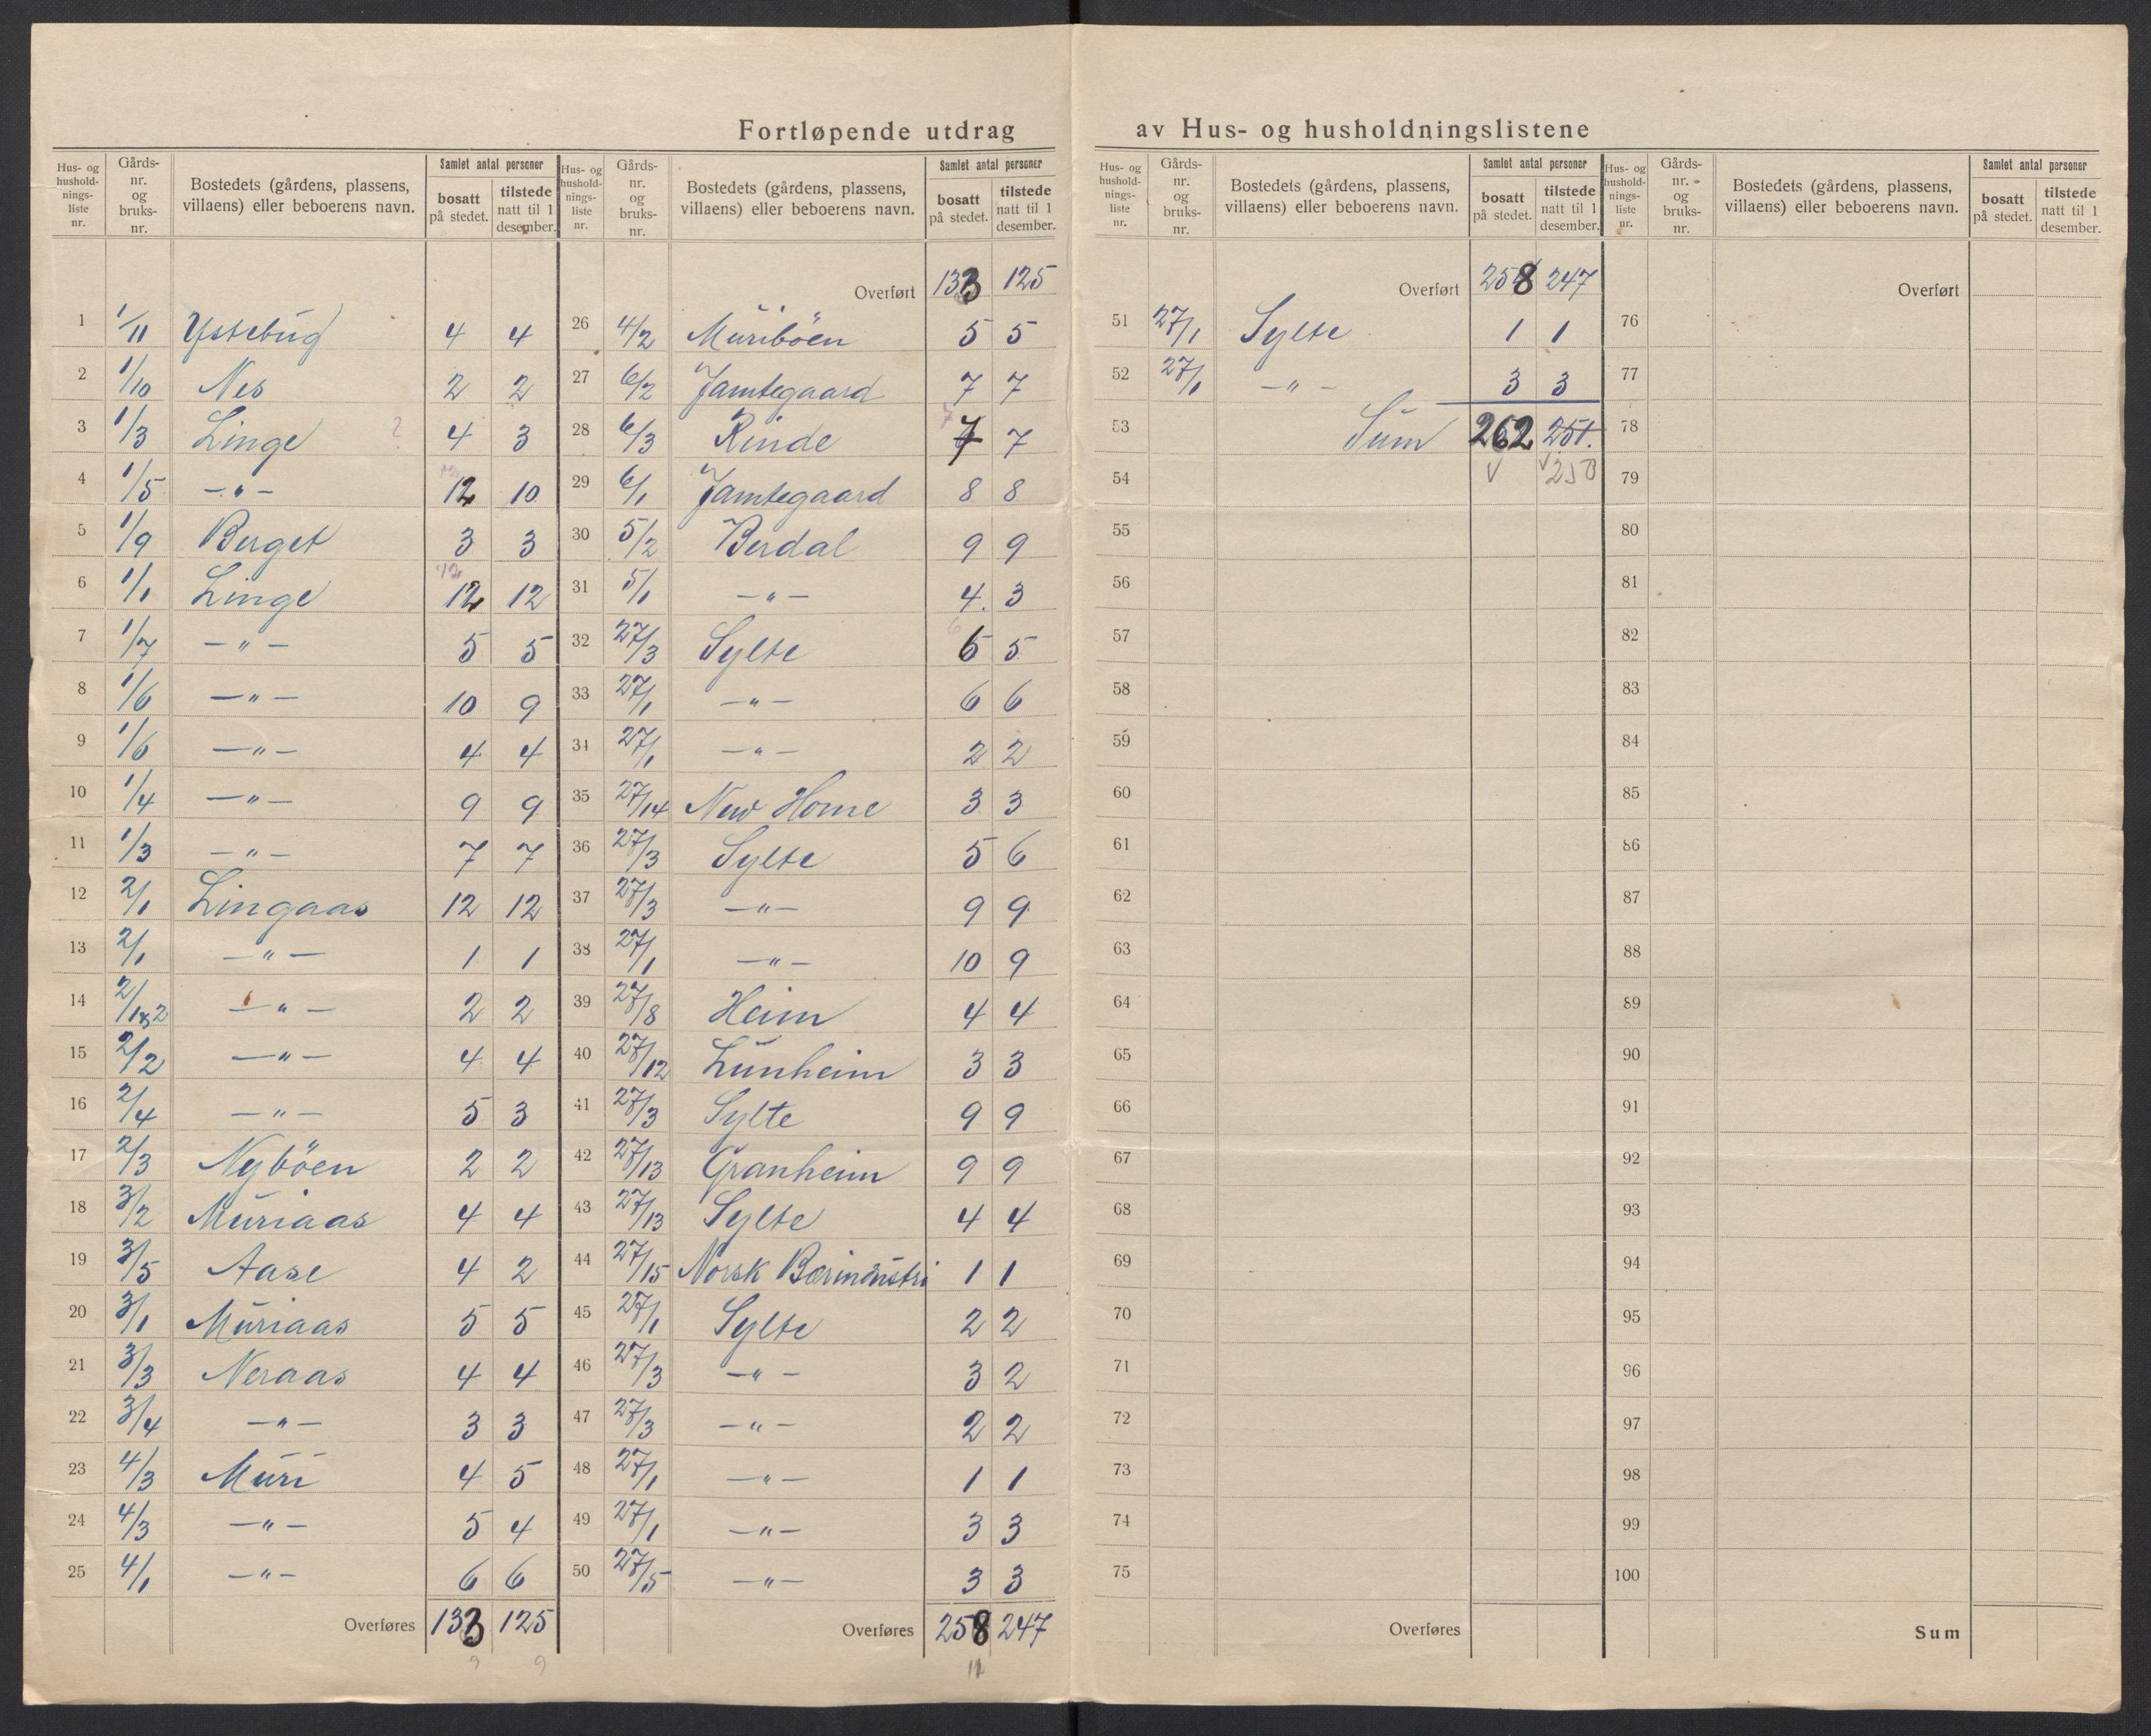 Fortløpende utdrag av Hus- og husholdningslistene
Hus- og hushold-nings-liste nr. Gårds-nr. og bruks-nr. Bostedets (gårdens, plassens, villaens) eller beboerens navn. Samlet antal personer bosatt på stedet. tilstede natt til 1 desember.
1 1/11 Ystebug 4 4
2 1/10 Nes 2 2
3 1/3 Linge ? 4 3
4 1/5 -"- 12 10
5 1/9 Berget 3 3
6 1/1 Linge 12 12
7 1/7 -"- 5 5
8 1/6 -"- 10 9
9 1/6 -"- 4 4
10 1/4 -"- 9 9
11 1/3 -"- 7 7
12 2/1 Lingaas 12 12
13 2/1 -"- 1 1
14 2/1&2 -"- 2 2
15 2/2 -"- 4 4
16 2/4 -"- 5 3
17 2/3 Nyböen 2 2
18 3/2 Muriaas 4 4
19 3/5 Aase 4 2
20 3/1 Muriaas 5 5
21 3/3 Neraas 4 4
22 3/4 -"- 3 3
23 4/3 Muri 4 5
24 4/3 -"- 5 4
25 4/1 -"- 6 6
Overføres 133 125
9 9
Hus- og hushold-nings-liste nr. Gårds-nr. og bruks-nr. Bostedets (gårdens, plassens, villaens) eller beboerens navn. Samlet antal personer bosatt på stedet. tilstede natt til 1 desember.
Overført 133 125
26 4/2 Muriböen 5 5
27 6/2 Jamtegaard 7 7
28 6/3 Rinde 7 7
29 6/1 Jamtegaard 8 8
30 5/2 Berdal 9 9
31 5/1 -"- 4. 3
32 27/3 Sylte 6 5
33 27/1 -"- 6 6
34 27/1 -"- 2 2
35 27/14 New Home 3 3
36 27/3 Sylte 5 6
37 27/3 -"- 9 9
38 27/1 -"- 10 9
39 27/8 Heim 4 4
40 27/12 Lunheim 3 3
41 27/3 Sylte 9 9
42 27/13 Granheim 9 9
43 27/13 Sylte 4 4
44 27/15 Norsk 1 1
45 27/1 Sylte 2 2
46 27/3 -"- 3 2
47 27/3 -"- 2 2
48 27/1 -"- 1 1
49 27/1 -"- 3 3
50 27/5 -"- 3 3
Overføres 258 247
Hus- og hushold-nings-liste nr. Gårds-nr. og bruks-nr. Bostedets (gårdens, plassens, villaens) eller beboerens navn. Samlet antal personer bosatt på stedet. tilstede natt til 1 desember.
Overført 258 247
51 27/1 Sylte 1 1
52 27/1 -"- 3 3
53 Sum 262 251.
54 √ √250
55
56
57
58
59
60
61
62
63
64
65
66
67
68
69
70
71
72
73
74
75
Overføres
Hus- og hushold-nings-liste nr. Gårds-nr. og bruks-nr. Bostedets (gårdens, plassens, villaens) eller beboerens navn. Samlet antal personer bosatt på stedet. tilstede natt til 1 desember.
Overført
76
77
78
79
80
81
82
83
84
85
86
87
88
89
90
91
92
93
94
95
96
97
98
99
100
Sum